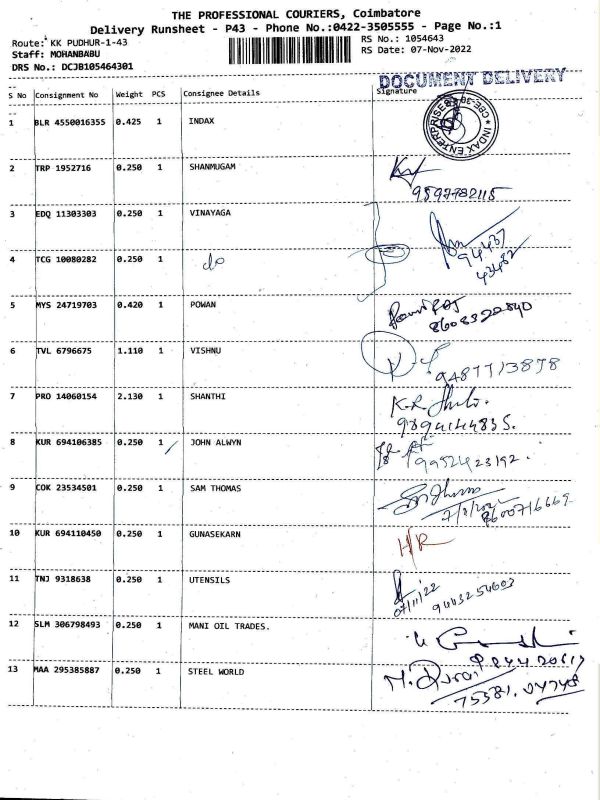 THE PROFESSIONAL COURIERS, Coimbatore
Delivery Runsheet - P43 - Phone No.:0422-3505555 - Page No.:1
Route: KK PUDHUR-1-43
RS No.: 1054643
Staff: MOHANBABU
RS Date: 07-Nov-2022
DRS No.: DCJB105464301
DOCUMENT DELIVERY
S No Consignment No Weight PCS Consignee Details Signature
1 BLR 4550016355 0.425 1 INDAX
INDAX ENTERPRISES
2 TRP 1952716 0.250 1 SHANMUGAM
9597782115
3 EDQ 11303303 0.250 1 VINAYAGA
94437
43482
4 TCG 10080282 0.250 1 do
5 MYS 24719703 0.420 1 POWAN
6 TVL 6796675 1.110 1 VISHNU
9487713878
7 PRO 14060154 2.130 1 SHANTHI
K.R.
9894144835.
8 KUR 694106385 0.250 1 JOHN ALWYN
9952423192.
9 COK 23534501 0.250 1 SAM THOMAS
8600716669
10 KUR 694110450 0.250 1 GUNASEKARN
H/R
11 TNJ 9318638 0.250 1 UTENSILS
07/11/22
9443254603
12 SLM 306798493 0.250 1 MANI OIL TRADES.
13 MAA 295385887 0.250 1 STEEL WORLD
75381.04748